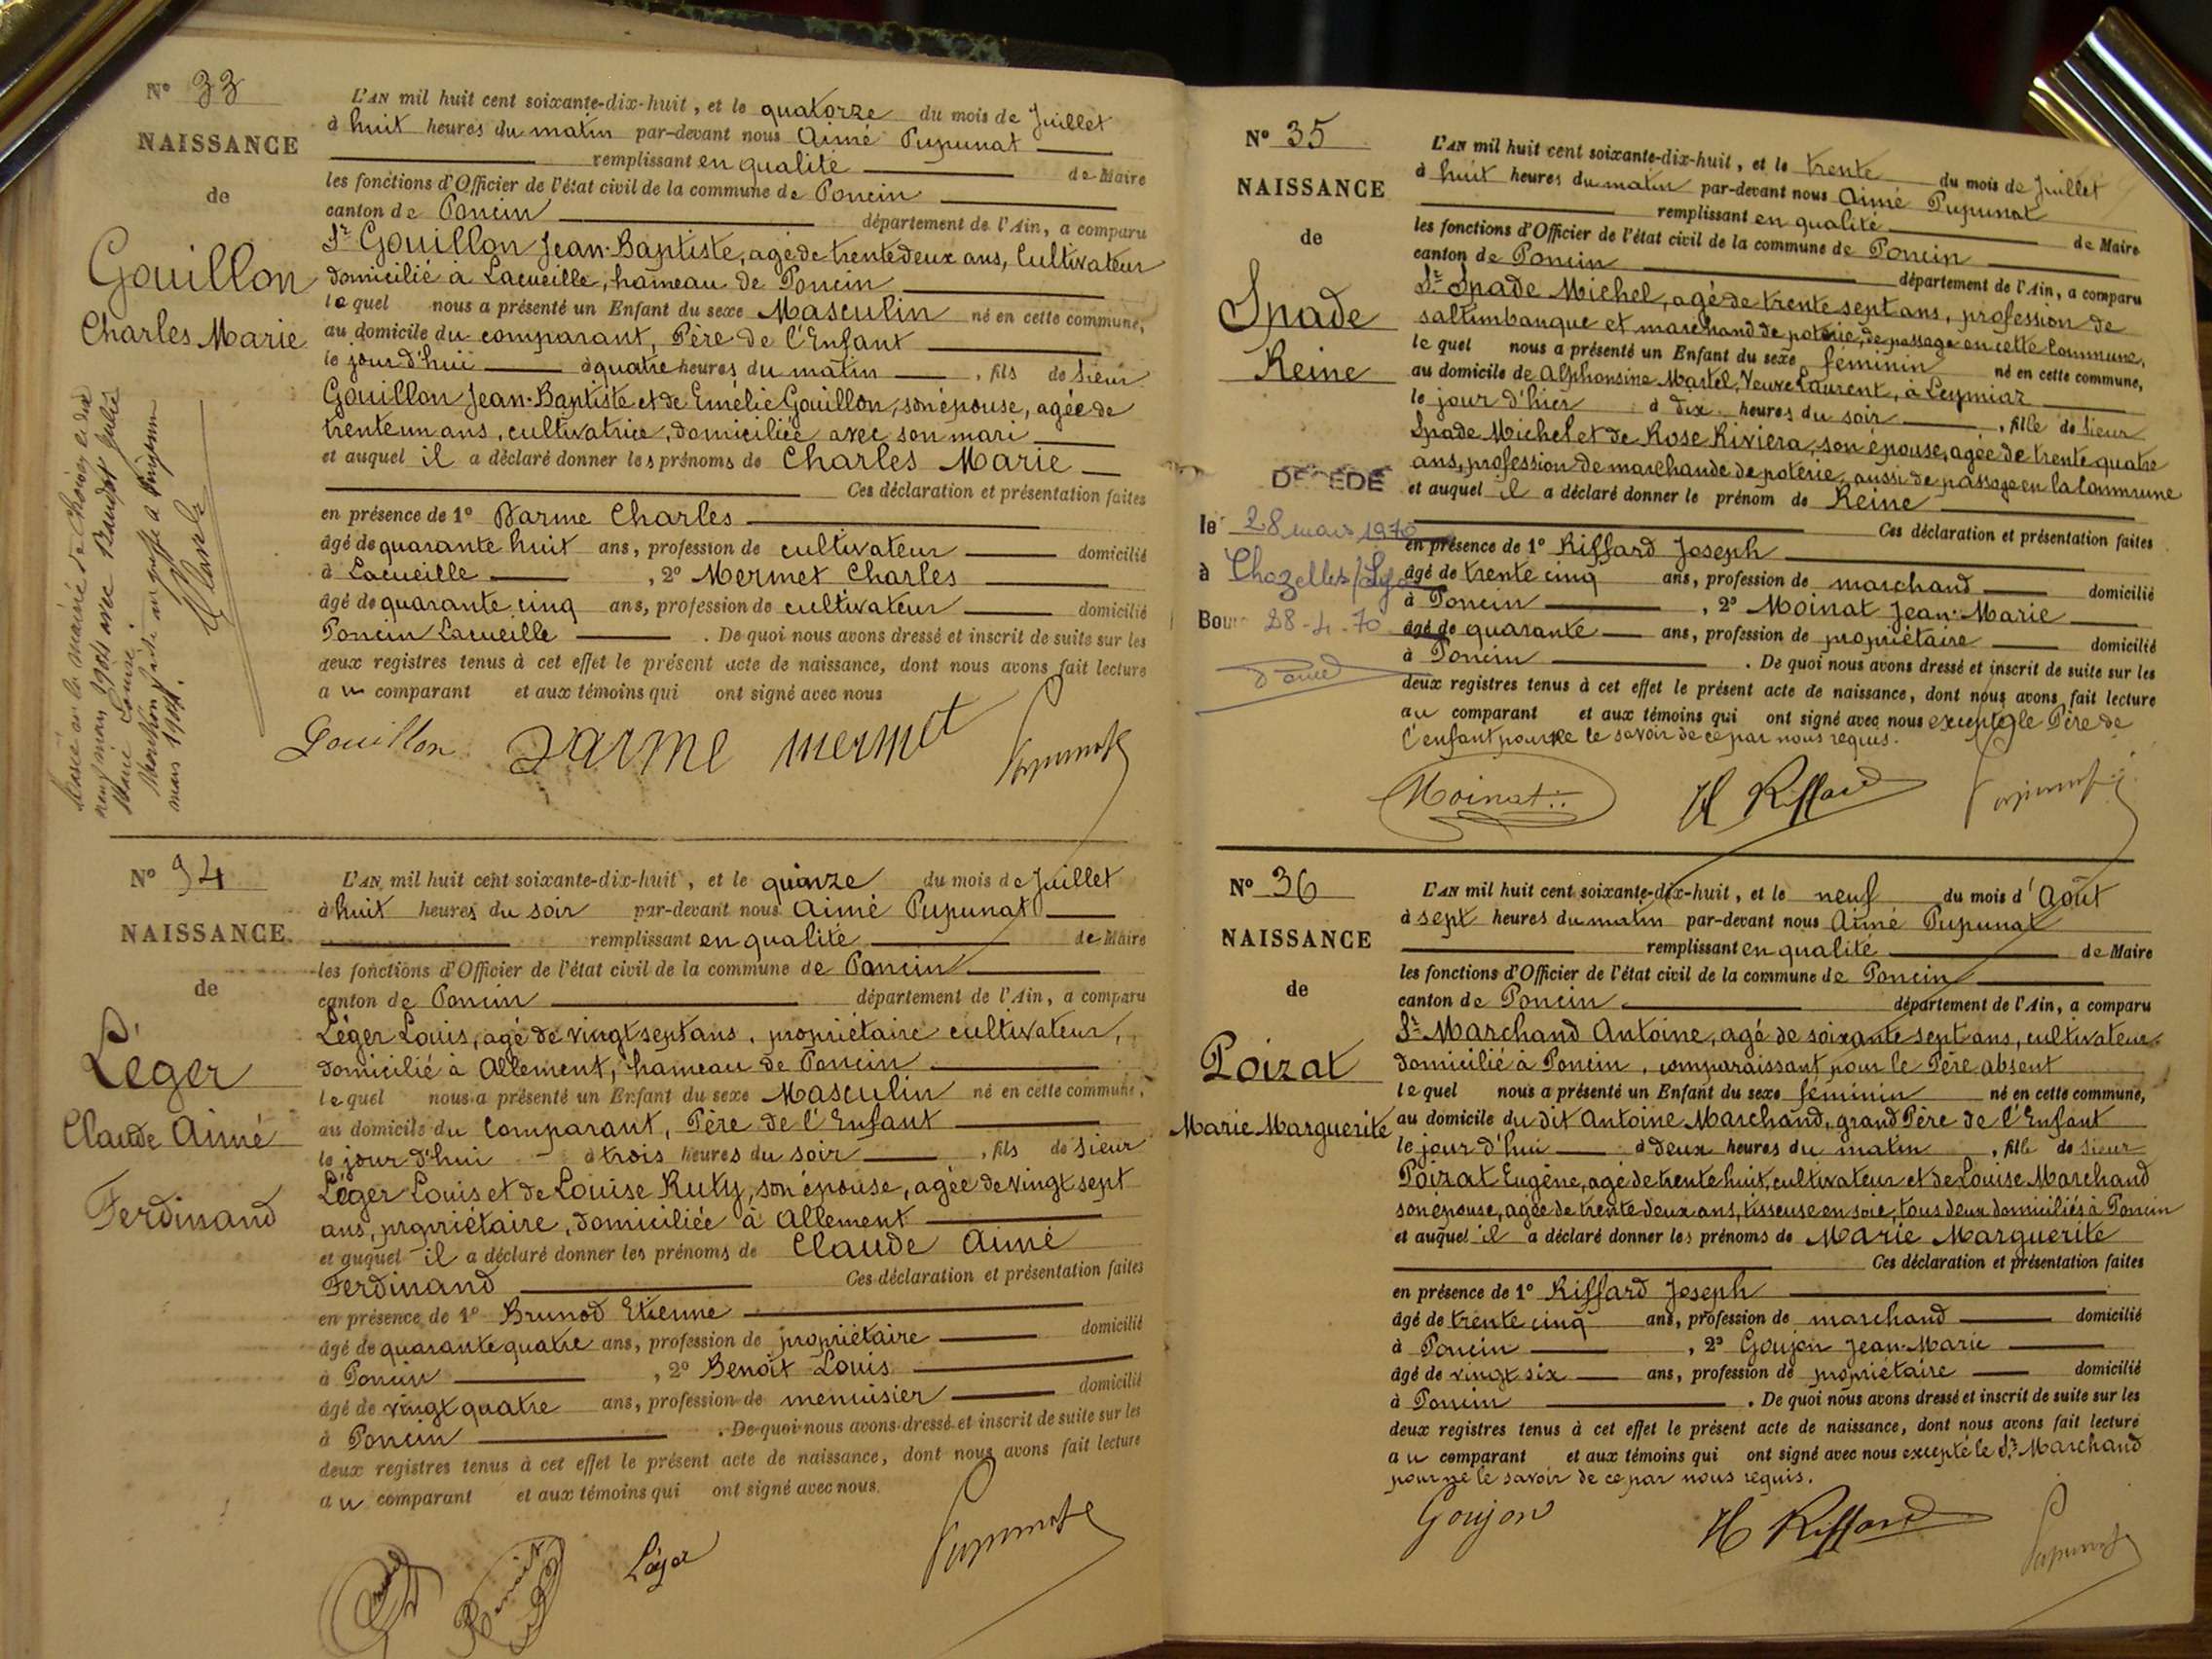 N° 33
NAISSANCE
de
Gouillon
Charles Marie
L'AN mil huit cent soixante-dix-huit, et le quatorze du mois de Juillet
à huit heures du matin par-devant nous Aimé Pupunat
remplissant en qualité de Maire
les fonctions d'Officier de l'état civil de la commune de Poncin
canton de Poncin département de l'Ain, a comparu
Sr Gouillon Jean-Baptiste, agé de trente deux ans, Cultivateur
domicilié à Lacueille, hameau de Poncin
lequel nous a présenté un Enfant du sexe Masculin né en cette commune,
au domicile du comparant, Père de l'Enfant
le jour d'hui à quatre heures du matin, fils de Sieur
Gouillon Jean-Baptiste et de Emélie Gouillon, son épouse, agée de
trente un ans, cultivatrice, domiciliée avec son mari
et auquel il a déclaré donner les prénoms de Charles Marie
Ces déclaration et présentation faites
en présence de 1° Darme Charles
âgé de quarante huit ans, profession de cultivateur domicilié
à Lacueille, 2° Mermet Charles
âgé de quarante cinq ans, profession de cultivateur domicilié
Poncin Lacueille. De quoi nous avons dressé et inscrit de suite sur les
deux registres tenus à cet effet le présent acte de naissance, dont nous avons fait lecture
au comparant et aux témoins qui ont signé avec nous
Gouillon Darme mermet Pupunat
mars 1904.
N° 34
NAISSANCE
de
Léger
Claude Aimé
Ferdinand
L'AN mil huit cent soixante-dix-huit, et le quinze du mois de Juillet
à huit heures du soir par-devant nous Aimé Pupunat
remplissant en qualité de Maire
les fonctions d'Officier de l'état civil de la commune de Poncin
canton de Poncin département de l'Ain, a comparu
Léger Louis, agé de vingt sept ans, propriétaire cultivateur,
domicilié à Allement, hameau de Poncin
lequel nous a présenté un Enfant du sexe Masculin né en cette commune,
au domicile du Comparant, Père de l'Enfant
le jour d'hui à trois heures du soir, fils de Sieur
Léger Louis et de Louise Ruty, son épouse, agée de vingt sept
ans, propriétaire, domiciliée à Allement
et auquel il a déclaré donner les prénoms de Claude Aimé
Ferdinand Ces déclaration et présentation faites
en présence de 1° Brunod Etienne
âgé de quarante quatre ans, profession de propriétaire domicilié
à Poncin, 2° Benoît Louis
âgé de vingt quatre ans, profession de menuisier domicilié
à Poncin. De quoi nous avons dressé et inscrit de suite sur les
deux registres tenus à cet effet le présent acte de naissance, dont nous avons fait lecture
au comparant et aux témoins qui ont signé avec nous.
Léger Pupunat
N° 35
NAISSANCE
de
Spade
Reine
DECEDE
le 28 mars 1970
à Chazelles/Lyon
28-4-70
L'AN mil huit cent soixante-dix-huit, et le trente du mois de Juillet
à huit heures du matin par-devant nous Aimé Pupunat
remplissant en qualité de Maire
les fonctions d'Officier de l'état civil de la commune de Poncin
canton de Poncin département de l'Ain, a comparu
Sr Spade Michel, agé de trente sept ans, profession de
saltimbanque et marchand de poterie, de passage en cette Commune,
lequel nous a présenté un Enfant du sexe féminin né en cette commune,
au domicile de Alphonsine Martel, Veuve Laurent, à Leymiaz
le jour d'hier à dix heures du soir, fille de Sieur
Spade Michel et de Rose Riviera, son épouse, agée de trente quatre
ans, profession de marchande de poterie, aussi de passage en la Commune
et auquel il a déclaré donner le prénom de Reine
Ces déclaration et présentation faites
en présence de 1° Riffard Joseph
âgé de trente cinq ans, profession de marchand domicilié
à Poncin, 2° Moinat Jean-Marie
âgé de quarante ans, profession de propriétaire domicilié
à Poncin. De quoi nous avons dressé et inscrit de suite sur les
deux registres tenus à cet effet le présent acte de naissance, dont nous avons fait lecture
au comparant et aux témoins qui ont signé avec nous excepté le Père de
l'enfant pour ne le savoir de ce par nous requis.
Moinat Riffard Pupunat
N° 36
NAISSANCE
de
Poizat
Marie Marguerite
L'AN mil huit cent soixante-dix-huit, et le neuf du mois d'Août
à sept heures du matin par-devant nous Aimé Pupunat
remplissant en qualité de Maire
les fonctions d'Officier de l'état civil de la commune de Poncin
canton de Poncin département de l'Ain, a comparu
Sr Marchand Antoine, agé de soixante sept ans, cultivateur
domicilié à Poncin, comparaissant pour le Père absent
lequel nous a présenté un Enfant du sexe féminin né en cette commune,
au domicile du dit Antoine Marchand, grand Père de l'Enfant
le jour d'hui à deux heures du matin, fille de Sieur
Poizat Eugène, agé de trente huit, cultivateur et de Louise Marchand
son épouse, agée de trente deux ans, tisseuse en soie, tous deux domiciliés à Poncin
et auquel il a déclaré donner les prénoms de Marie Marguerite
Ces déclaration et présentation faites
en présence de 1° Riffard Joseph
âgé de trente cinq ans, profession de marchand domicilié
à Poncin, 2° Goujon Jean-Marie
âgé de vingt six ans, profession de propriétaire domicilié
à Poncin. De quoi nous avons dressé et inscrit de suite sur les
deux registres tenus à cet effet le présent acte de naissance, dont nous avons fait lecture
au comparant et aux témoins qui ont signé avec nous excepté le Sr Marchand
pour ne le savoir de ce par nous requis.
Goujon Riffard Pupunat